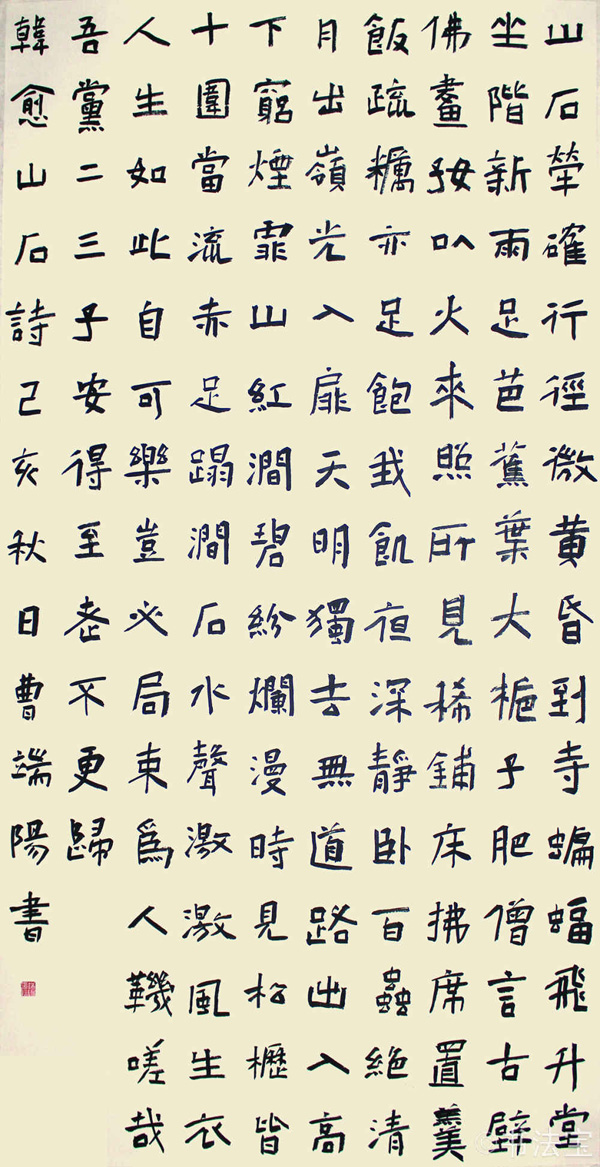 山石犖確行徑微黄昏到寺蝙蝠飛升堂
坐階新雨足芭蕉葉大梔子肥僧言古壁
佛畫好以火來照所見稀鋪床拂席置羹
飯疏糲亦足飽我飢夜深靜卧百蟲絶清
月出嶺光入扉天明獨去無道路出入高
下窮煙霏山紅澗碧紛爛漫時見松櫪皆
十圍當流赤足蹋澗石水聲激激風生衣
人生如此自可樂豈必局束爲人鞿嗟哉
吾黨二三子安得至老不更歸
韓愈山石詩己亥秋日曹端陽書
书法宝